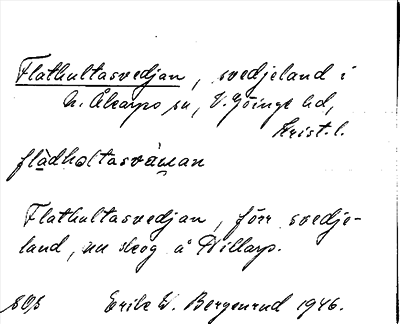 Flathultasvedjan, svedjeland i
N. Åkarps sn, V. Göinge hd,
Krist. l.
flädhøltasväman
Flathultasvedjan, förr svedje-
land, nu skog å Hillarp.
Erik W. Bergenrud 1946.